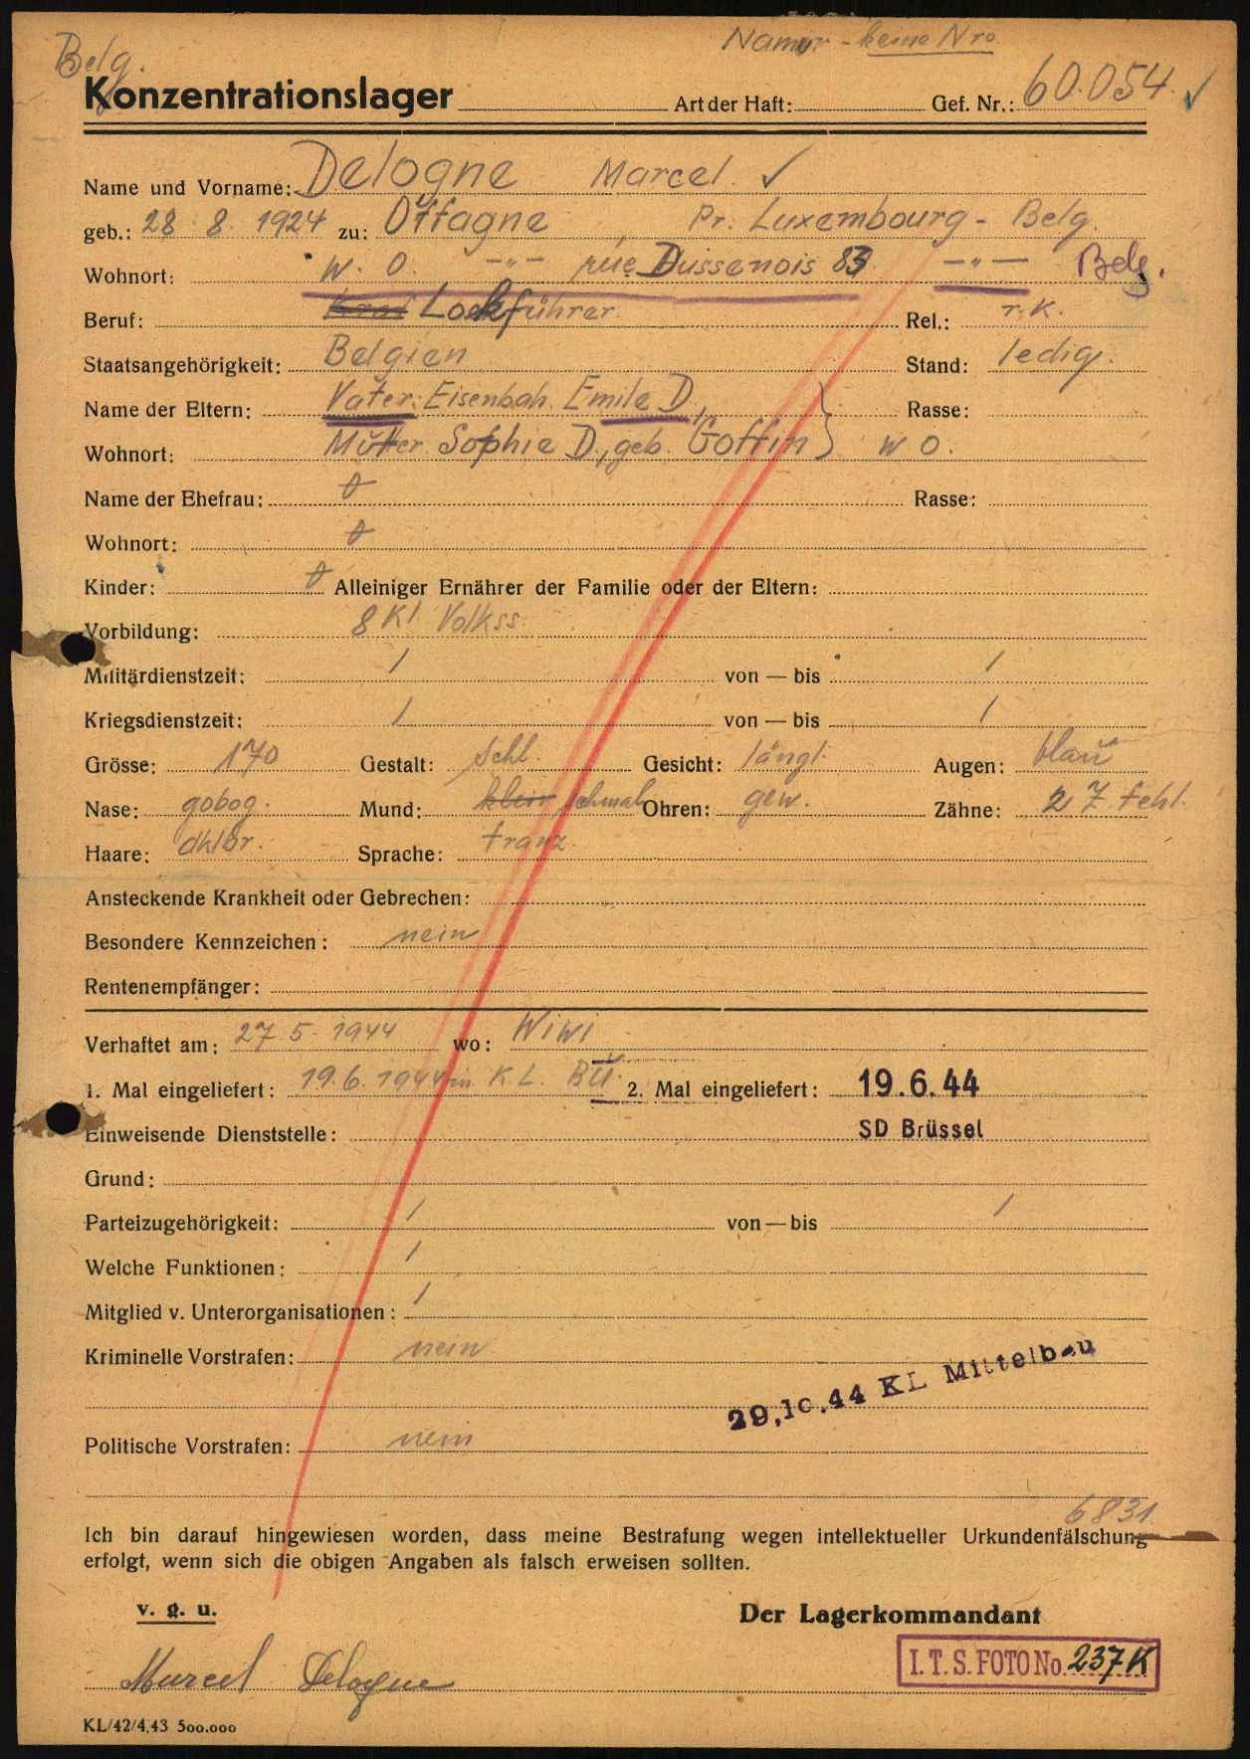 Belg. Namur - keine Nro.
Konzentrationslager Art der Haft: Gef. Nr.: 60.054. ✓
Name und Vorname: Delogne Marcel. ✓
geb.: 28. 8. 1924 zu: Offagne, Pr. Luxembourg - Belg.
Wohnort: w. o. -"- rue Dussenois 83 -"- Belg.
Beruf: Lockführer Rel.: r. k.
Staatsangehörigkeit: Belgien Stand: ledig.
Name der Eltern: Vater: Eisenbah. Emile D., Rasse:
Wohnort: Mutter Sophie D., geb. Goffin } w o.
Name der Ehefrau: Rasse:
Wohnort:
Kinder: Alleiniger Ernährer der Familie oder der Eltern:
Vorbildung: 8 Kl. Volkss.
Militärdienstzeit: / von — bis /
Kriegsdienstzeit: / von — bis /
Grösse: 170 Gestalt: schl. Gesicht: längl. Augen: blau
Nase: gobog. Mund: klein schmal Ohren: gew. Zähne: 2 Z. fehl.
Haare: dklbr. Sprache: franz.
Ansteckende Krankheit oder Gebrechen:
Besondere Kennzeichen: nein
Rentenempfänger:
Verhaftet am: 27. 5. 1944 wo: Wiwi
1. Mal eingeliefert: 19. 6. 1944 in K. L. Bu. 2. Mal eingeliefert: 19.6.44
Einweisende Dienststelle: SD Brüssel
Grund:
Parteizugehörigkeit: / von — bis /
Welche Funktionen: /
Mitglied v. Unterorganisationen: /
Kriminelle Vorstrafen: nein
29.10.44 KL Mittelbau
Politische Vorstrafen: nein
6831
Ich bin darauf hingewiesen worden, dass meine Bestrafung wegen intellektueller Urkundenfälschung
erfolgt, wenn sich die obigen Angaben als falsch erweisen sollten.
v. g. u. Der Lagerkommandant
Marcel Delogne I.T.S. FOTO No. 237 K
KL/42/4.43 500.000